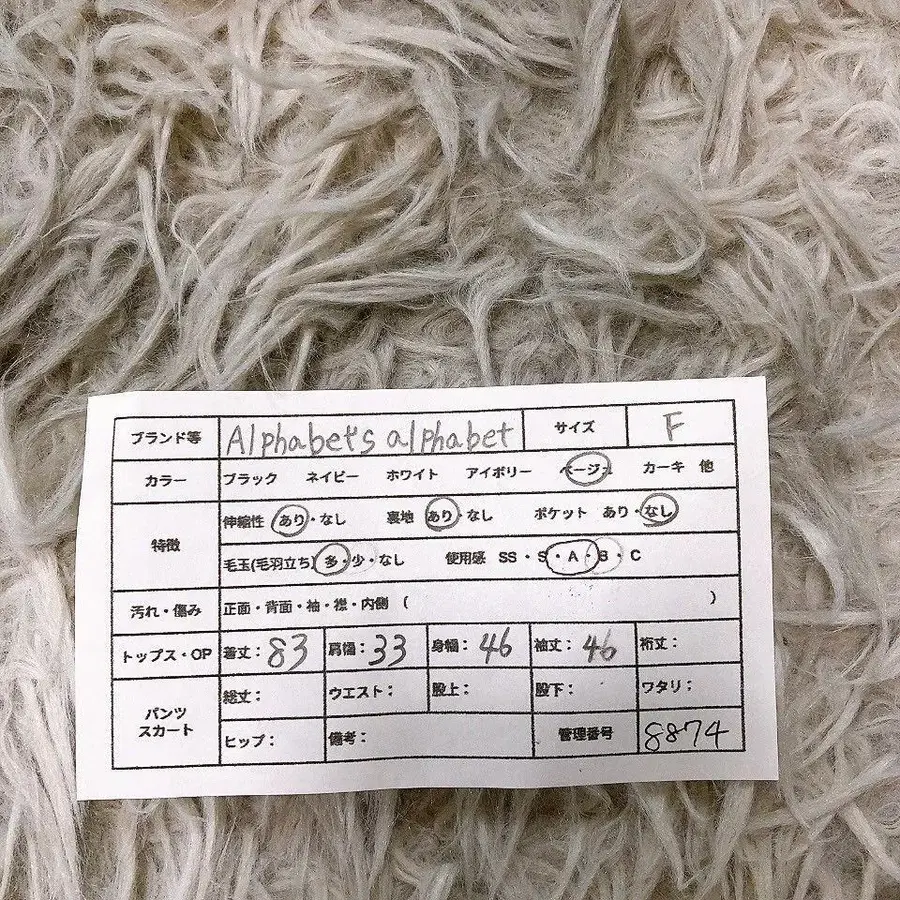 ブランド等 Alphabet's alphabet サイズ F
カラー ブラック ネイビー ホワイト アイボリー ベージュ カーキ 他
特徴 伸縮性 あり・なし 裏地 あり・なし ポケット あり・なし
毛玉(毛羽立ち) 多・少・なし 使用感 SS・S・A・B・C
汚れ・傷み 正面・背面・袖・襟・内側 ( )
トップス・OP 着丈：83 肩幅：33 身幅：46 袖丈：46 裄丈：
パンツ スカート 総丈： ウエスト： 股上： 股下： ワタリ：
ヒップ： 備考： 管理番号 8874